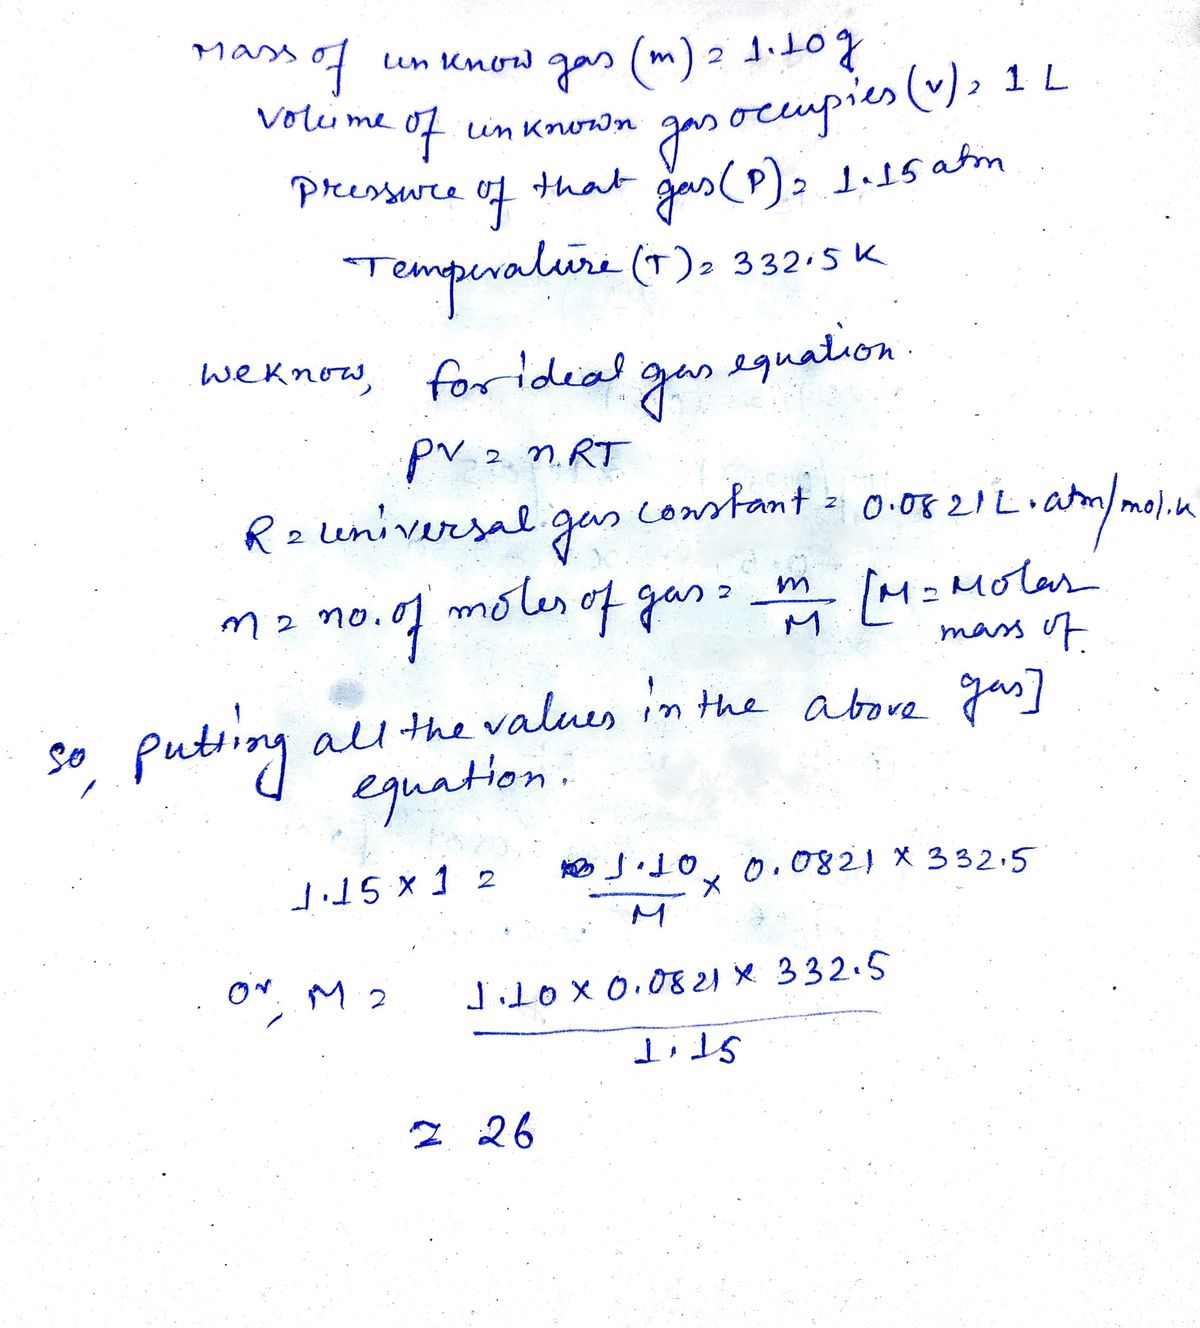 Mass of unknow gas (m) = 1.10 g
Volume of unknown gas occupies (v) = 1 L
Pressure of that gas (P) = 1.15 atm
Temperature (T) = 332.5 K
We know, for ideal gas equation.
PV = n.RT
R = universal gas constant = 0.0821 L.atm/mol.k
n = no. of moles of gas = m/M [M = Molar
mass of
gas]
so, putting all the values in the above
equation.
1.15 × 1 = 1.10/M × 0.0821 × 332.5
or, M = 1.10 × 0.0821 × 332.5 / 1.15
= 26